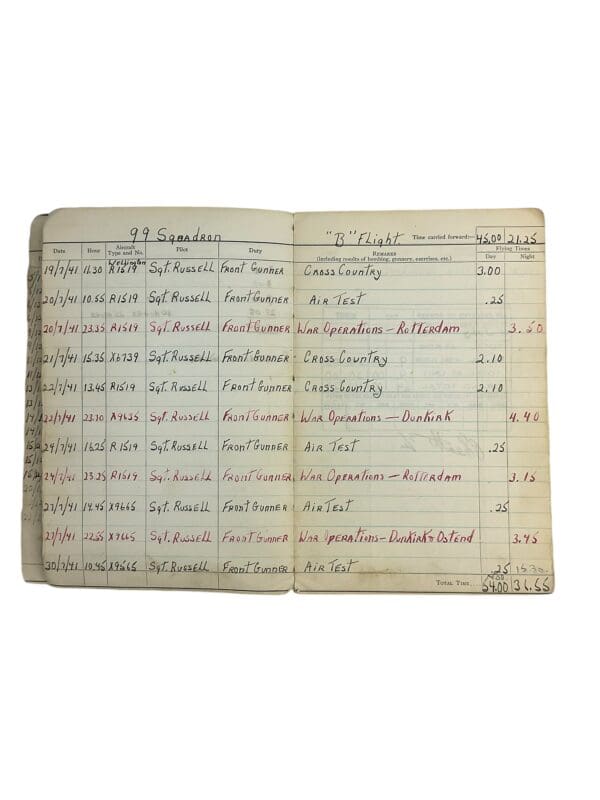 99 Squadron "B" Flight. Time carried forward:— 45.00 21.25
Date Hour Aircraft Type and No. Pilot Duty Remarks (including results of bombing, gunnery, exercises, etc.) Flying Times Day Night
Wellington
19/7/41 11.30 R1519 Sgt. Russell Front Gunner Cross Country 3.00
20/7/41 10.55 R1519 Sgt. Russell Front Gunner Air Test .25
20/7/41 23.35 R1519 Sgt. Russell Front Gunner War Operations — Rotterdam 3.50
21/7/41 15.35 X6739 Sgt. Russell Front Gunner Cross Country 2.10
22/7/41 13.45 R1519 Sgt. Russell Front Gunner Cross Country 2.10
22/7/41 23.10 Sgt. Russell Front Gunner War Operations — Dunkirk 4.40
24/7/41 16.25 R1519 Sgt. Russell Front Gunner Air Test .25
24/7/41 23.25 R1519 Sgt. Russell Front Gunner War Operations — Rotterdam 3.15
27/7/41 14.45 Sgt. Russell Front Gunner Air Test .25
27/7/41 22.55 Sgt. Russell Front Gunner War Operations — Dunkirk & Ostend 3.45
30/7/41 10.45 Sgt. Russell Front Gunner Air Test .25 15.30
Total Time 54.00 36.55